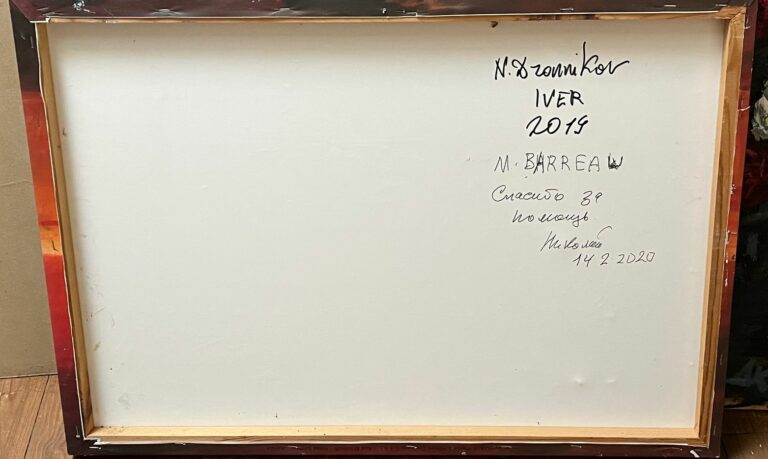 N. Dronnikov
IVER
2019
M. BARREAU
Спасибо за
помощь.
Николай
14 2 2020